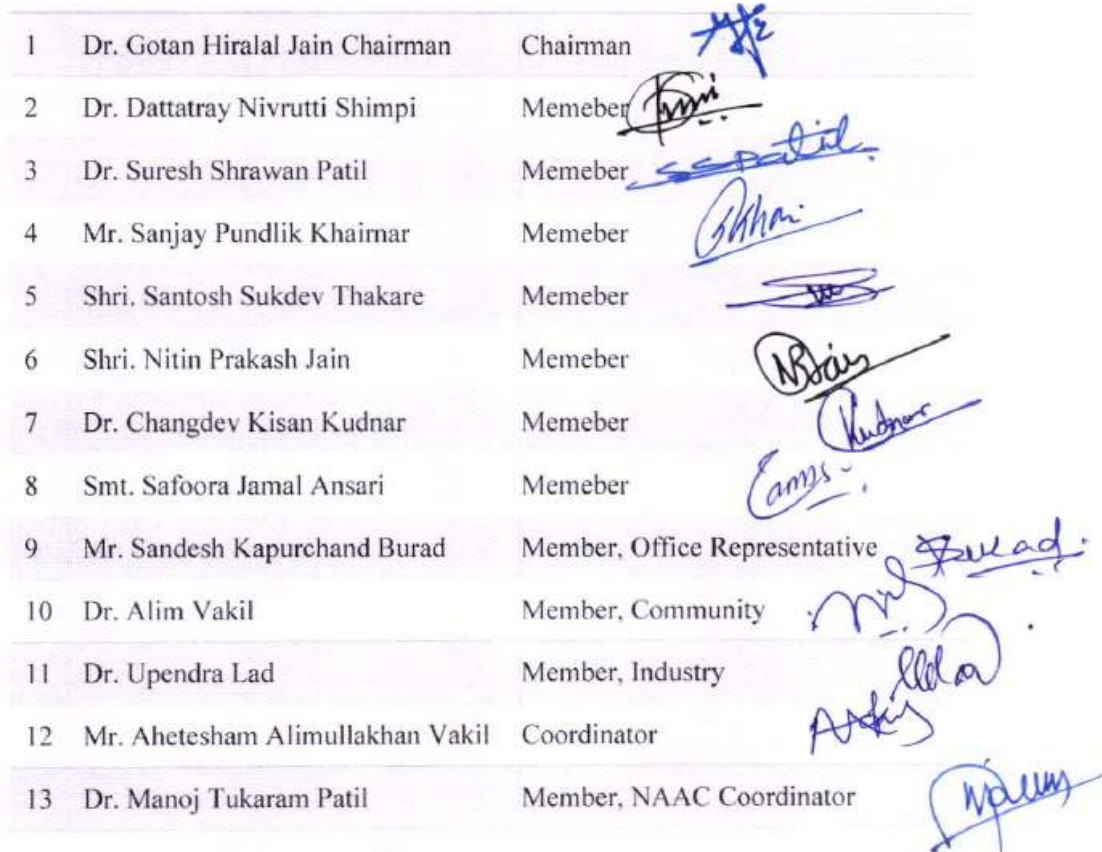 1 Dr. Gotan Hiralal Jain Chairman Chairman
2 Dr. Dattatray Nivrutti Shimpi Memeber
3 Dr. Suresh Shrawan Patil Memeber sspatil
4 Mr. Sanjay Pundlik Khairnar Memeber
5 Shri. Santosh Sukdev Thakare Memeber
6 Shri. Nitin Prakash Jain Memeber NBJain
7 Dr. Changdev Kisan Kudnar Memeber Kudnar
8 Smt. Safoora Jamal Ansari Memeber
9 Mr. Sandesh Kapurchand Burad Member, Office Representative Burad
10 Dr. Alim Vakil Member, Community
11 Dr. Upendra Lad Member, Industry
12 Mr. Ahetesham Alimullakhan Vakil Coordinator
13 Dr. Manoj Tukaram Patil Member, NAAC Coordinator